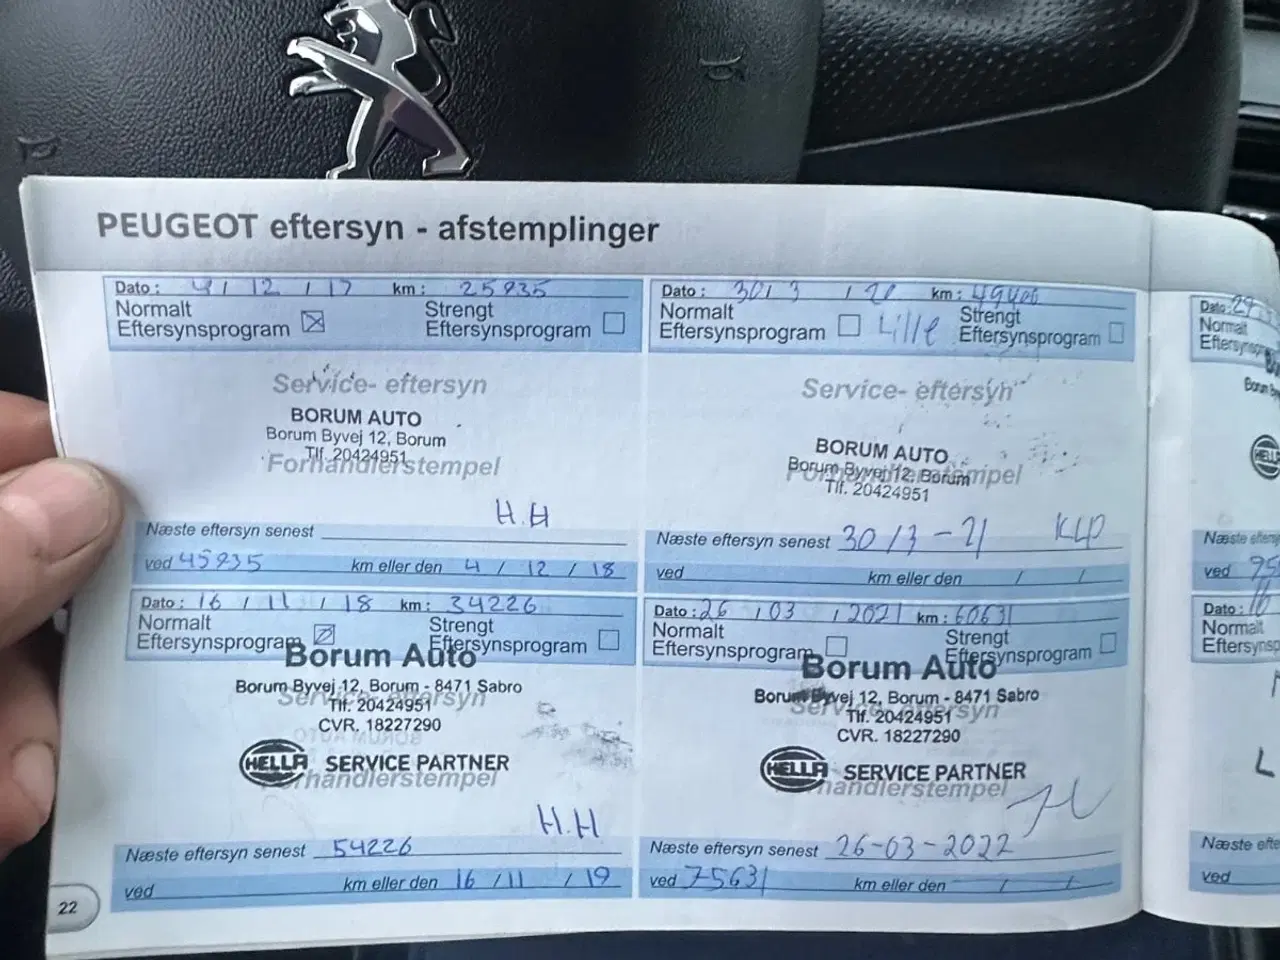 PEUGEOT eftersyn - afstemplinger
Dato: 4 / 12 / 17 km: 25835
Normalt
Eftersynsprogram
Strengt
Eftersynsprogram
Service- eftersyn
BORUM AUTO
Borum Byvej 12, Borum
Tlf. 20424951
Forhandlerstempel
H.H
Næste eftersyn senest
ved 45835 km eller den 4 / 12 / 18
Dato: 16 / 11 / 18 km: 34226
Normalt
Eftersynsprogram
Strengt
Eftersynsprogram
Borum Auto
Borum Byvej 12, Borum - 8471 Sabro
Service- eftersyn
Tlf. 20424951
CVR. 18227290
HELLA SERVICE PARTNER
Forhandlerstempel
H.H
Næste eftersyn senest 54226
ved km eller den 16 / 11 / 19
22
Dato: 30 / 3 / 20 km:
Normalt
Eftersynsprogram
Lille
Strengt
Eftersynsprogram
Service- eftersyn
BORUM AUTO
Borum Byvej 12, Borum
Forhandlerstempel
Tlf. 20424951
Næste eftersyn senest 30/3-21 KLP
ved km eller den / /
Dato: 26 / 03 / 2021 km: 60631
Normalt
Eftersynsprogram
Strengt
Eftersynsprogram
Borum Auto
Borum Byvej 12, Borum - 8471 Sabro
Service- eftersyn
Tlf. 20424951
CVR. 18227290
HELLA SERVICE PARTNER
Forhandlerstempel
Næste eftersyn senest 26-03-2022
ved 75631 km eller den / /
Dato:
Normalt
HELLA
Næste
ved
Dato:
Normalt
Næste
ved